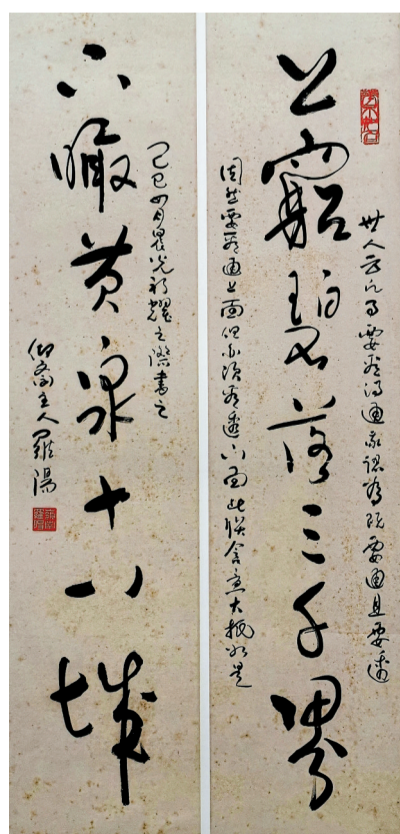 上窮碧落三千界
世人言凡事要看得通我認為既要通且要透
固然要看通上面但亦須看透下面此聯含意大抵如是
下瞰黄泉十八城
己巳四月晨光初耀之際書之
主人羅陽